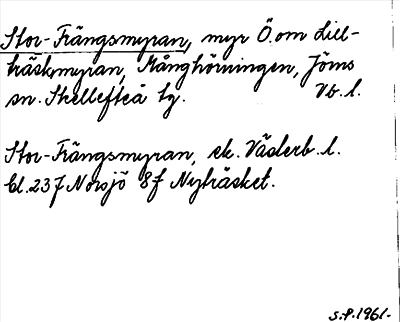 Stor-Trängsmyran, myr Ö. om Lill-
träskmyran, Månghörningen, Jörns
sn. Skellefteå tg. Vb. l.
Stor-Trängsmyran, ek. Västerb. l.
bl. 23 J Norsjö 8f Nyträsket.
S.P. 1961.